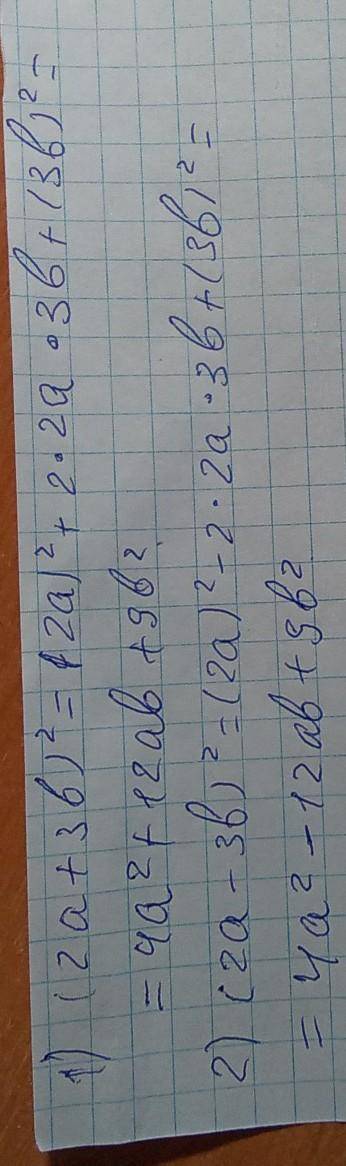 1) (2a+3b)²=(2a)²+2·2a·3b+(3b)²=
=4a²+12ab+9b²
2) (2a-3b)²=(2a)²-2·2a·3b+(3b)²=
=4a²-12ab+9b²